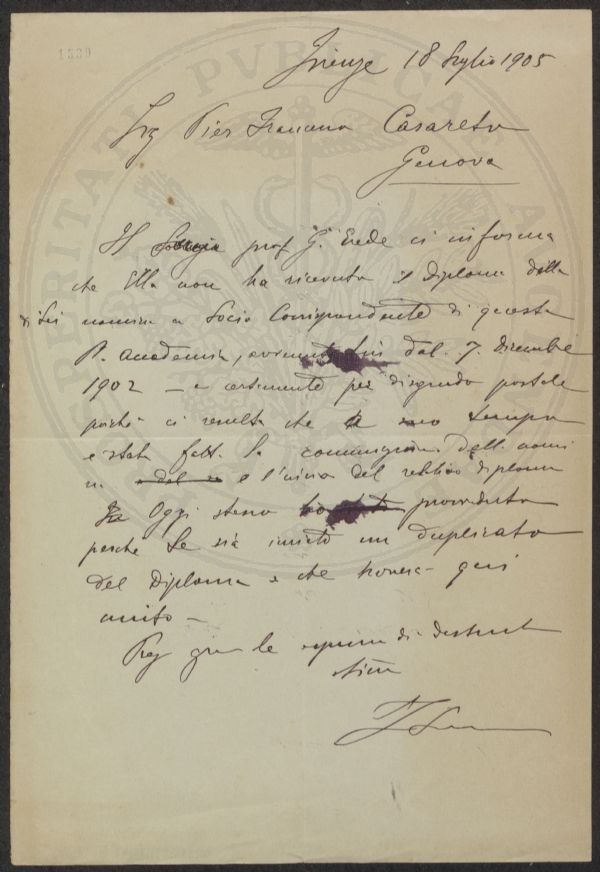 1339
Firenze 18 Luglio 1905
Sig Pier Francesco Casareto
Genova
Il prof. G. Erede ci informa
che Ella non ha ricevuto il Diploma della
di Lei nomina a Socio Corrispondente di questa
R. Accademia, avvenuta fin dal 7. Dicembre
1902 — e certamente per disguido postale
poichè ci risulta che a suo tempo
è stata fatta la comunicazione della nomi
na e l'invio del relativo diploma
Oggi stesso provveduto
perchè Le sia inviato un duplicato
del Diploma e che troverà qui
unito —
Preg le di distint
stima